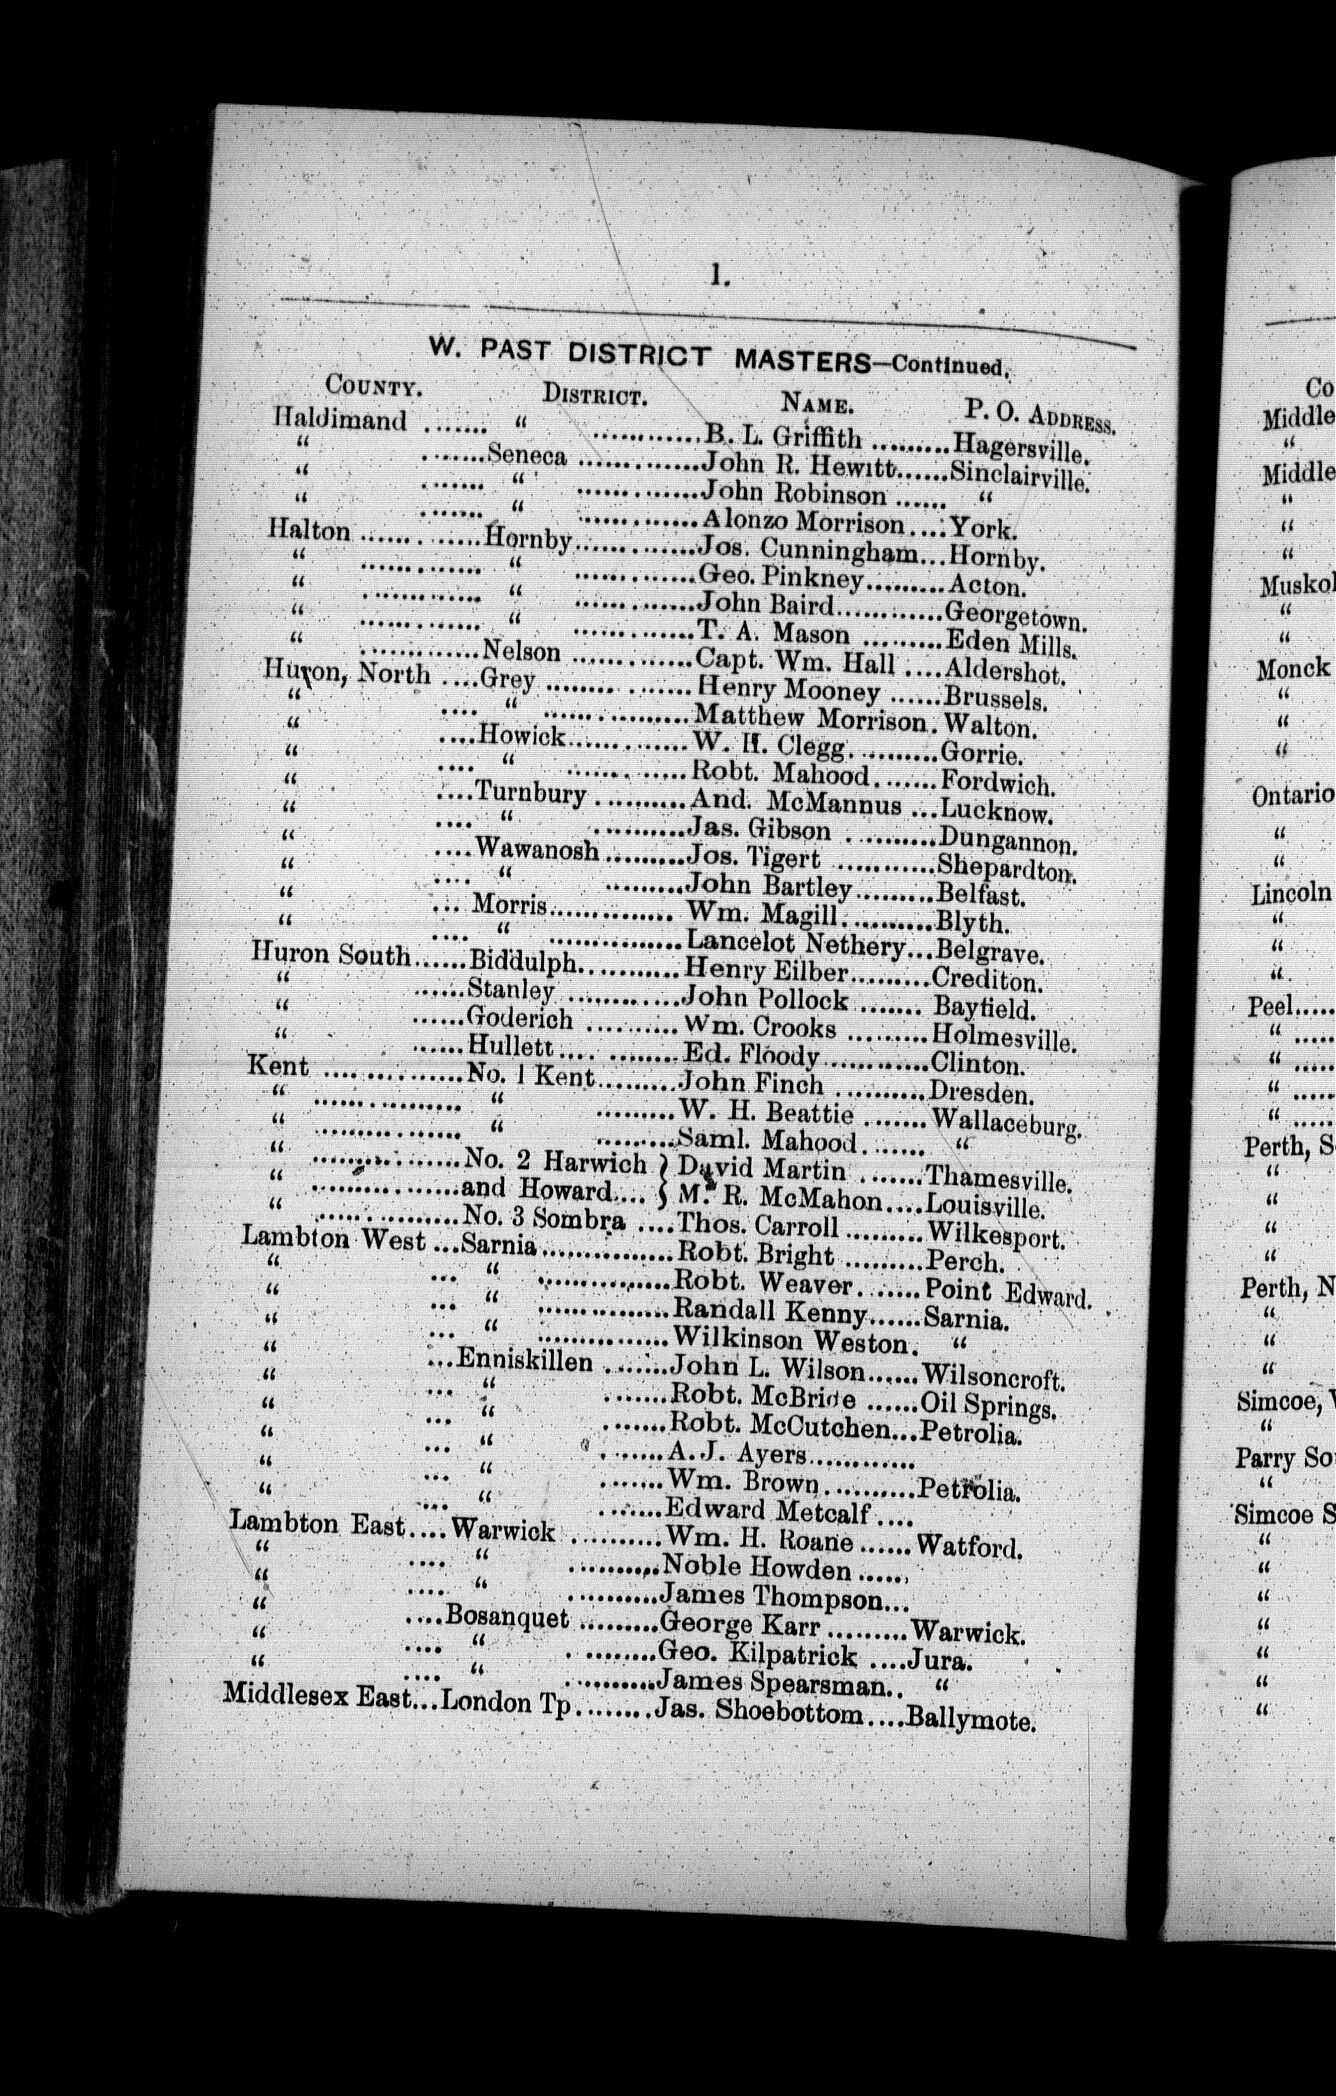 l.
W. PAST DISTRICT MASTERS—Continued.
COUNTY. DISTRICT. NAME. P. O. ADDRESS.
Haldimand ....... “ ............B. L. Griffith .........Hagersville.
“ .......Seneca .............John R. Hewitt......Sinclairville.
“ ....... “ .............John Robinson ...... “
“ ....... “ .............Alonzo Morrison....York.
Halton .............Hornby.............Jos. Cunningham...Hornby.
“ ............. “ .............Geo. Pinkney.........Acton.
“ ............. “ .............John Baird............Georgetown.
“ ............. “ .............T. A. Mason .........Eden Mills.
“ ............Nelson .............Capt. Wm. Hall ....Aldershot.
Huron, North ....Grey ............... Henry Mooney ......Brussels.
“ .... “ ...............Matthew Morrison. Walton.
“ ....Howick.............W. H. Clegg..........Gorrie.
“ .... “ .............Robt. Mahood.......Fordwich.
“ ....Turnbury ..........And. McMannus ...Lucknow.
“ .... “ ..........Jas. Gibson ..........Dungannon.
“ ....Wawanosh.........Jos. Tigert ............Shepardton.
“ .... “ .........John Bartley.........Belfast.
“ ... Morris.............. Wm. Magill..........Blyth.
“ .... “ ...............Lancelot Nethery...Belgrave.
Huron South......Biddulph...........Henry Eilber.........Crediton.
“ ......Stanley ............John Pollock ....... Bayfield.
“ ......Goderich ..........Wm. Crooks .........Holmesville.
“ ......Hullett.... ........Ed. Floody............Clinton.
Kent ...............No. 1 Kent.........John Finch ..........Dresden.
“ ................ “ .........W. H. Beattie .......Wallaceburg.
“ ................ “ .........Saml. Mahood....... “
“ ................No. 2 Harwich } David Martin .......Thamesville.
“ ................and Howard.... } M. R. McMahon....Louisville.
“ ................No. 3 Sombra ....Thos. Carroll .........Wilkesport.
Lambton West ...Sarnia...............Robt. Bright .........Perch.
“ ... “ ...............Robt. Weaver.......Point Edward.
“ ... “ ...............Randall Kenny......Sarnia.
“ ... “ ...............Wilkinson Weston. “
“ ...Enniskillen .......John L. Wilson......Wilsoncroft.
“ ... “ .......Robt. McBride ......Oil Springs.
“ ... “ .......Robt. McCutchen...Petrolia.
“ ... “ .......A. J. Ayers............
“ ... “ .......Wm. Brown..........Petrolia.
“ ... “ .......Edward Metcalf ....
Lambton East....Warwick ..........Wm. H. Roane ......Watford.
“ .... “ ..........Noble Howden ......
“ .... “ ..........James Thompson...
“ ....Bosanquet .........George Karr .........Warwick.
“ .... “ .........Geo. Kilpatrick ....Jura.
“ .... “ ..........James Spearsman.. “
Middlesex East...London Tp........Jas. Shoebottom....Ballymote.
Co
Middle
“
Middle
“
“
“
Muskok
“
“
Monck
“
“
“
Ontario
“
“
Lincoln
“
“
“
Peel.....
“ .....
“ .....
“ .....
“ .....
Perth, S
“
“
“
“
Perth, N
“
“
“
Simcoe,
“
Parry So
“
Simcoe S
“
“
“
“
“
“
“